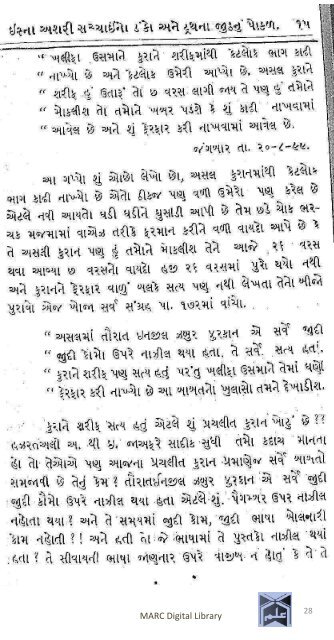 ઈસ્ના અશરી સચ્ચાઈનો ડંકો અને દ્રથના જીડનું પોકળ. ૧૫
“ ખલીફા ઉસમાને કુરાને શરીફમાંથી કેટલોક ભાગ કાઢી
“ નાખ્યો છે અને કેટલોક ઉમેરી આપ્યો છે, અસલ કુરાને
“ શરીફ હું ઉતારૂં તો છ વરસ લાગી જાય તે પણ હું તમોને
“ મોકલીશ તો તમોને ખબર પડશે કે શું કાઢી નાખવામાં
“ આવેલ છે અને શું ફેરફાર કરી નાખવામાં આવેલ છે.
જંગબાર તા. ૨૦-૮-૯૯.
આ ગપ્પો શું ઓછો લેખો છો, અસલ કુરાનમાંથી કેટલોક
ભાગ કાઢી નાખ્યો છે એતો ઠીકજ પણ વળી ઉમેરો પણ કરેલ છે
એટલે નવી આયતો ઘડી ઘડીને ઘુસાડી આપી છે તેમ છડે ચોક ભર-
ચક મજમામાં વાએઝ તરીકે ફરમાન કરીને વળી વાયદો આપે છે કે
તે અસલી કુરાન પણ હું તમોને મોકલીશ તેને આજે ૨૬ વરસ
થવા આવ્યા છ વરસનો વાયદો હજી ૨૬ વરસમાં પુરો થયો નથી
અને કુરાનને ફેરફાર વાળું બલકે સત્ય પણ નથી લેખતા તેનો બીજો
પુરાવો એજ ખોજા સર્વ સંગ્રહ પા. ૧૭૨માં વાંચો.
“ અસલમાં તૌરાત ઇનજીલ ઝબુર ફુરકાન એ સર્વે જુદી
“ જુદી કોમો ઉપરે નાઝીલ થયા હતા. તે સર્વે સત્ય હતાં,
“ કુરાને શરીફ પણ સત્ય હતું પરંતુ ખલીફા ઉસમાને તેમાં ઘણો
“ ફેરફાર કરી નાખ્યો છે આ બાબતનો ખુલાસો તમને દેખાડીશ.
કુરાને શરીફ સત્ય હતું એટલે શું પ્રચલીત કુરાન ખોટું છે??
હઝરતઅલી અ. થી ઇ. જાઅફરે સાદીક સુધી તમો કદાચ માનતા
હો તો તેઓએ પણ આજના પ્રચલીત કુરાન પ્રમાણેજ સર્વે બાબતો
સમજાવી છે તેનું કેમ? તૌરાતઈનજીલ ઝબુર ફુરકાન એ સર્વે જુદી
જુદી કૌમો ઉપરે નાઝીલ થયા હતા એટલે શું. પૈગમ્બર ઉપર નાઝીલ
નહોતા થયા? અને તે સમયમાં જુદી કોમ, જુદી ભાષા બોલનારી
કોમ નહોતી?! અને હતી તો જે ભાષામાં તે પુસ્તકો નાઝીલ થયાં
હતાં? તે સીવાયની ભાષા જાણનાર ઉપરે વાજીબ નહોતું કે તે તે
MARC Digital Library
28